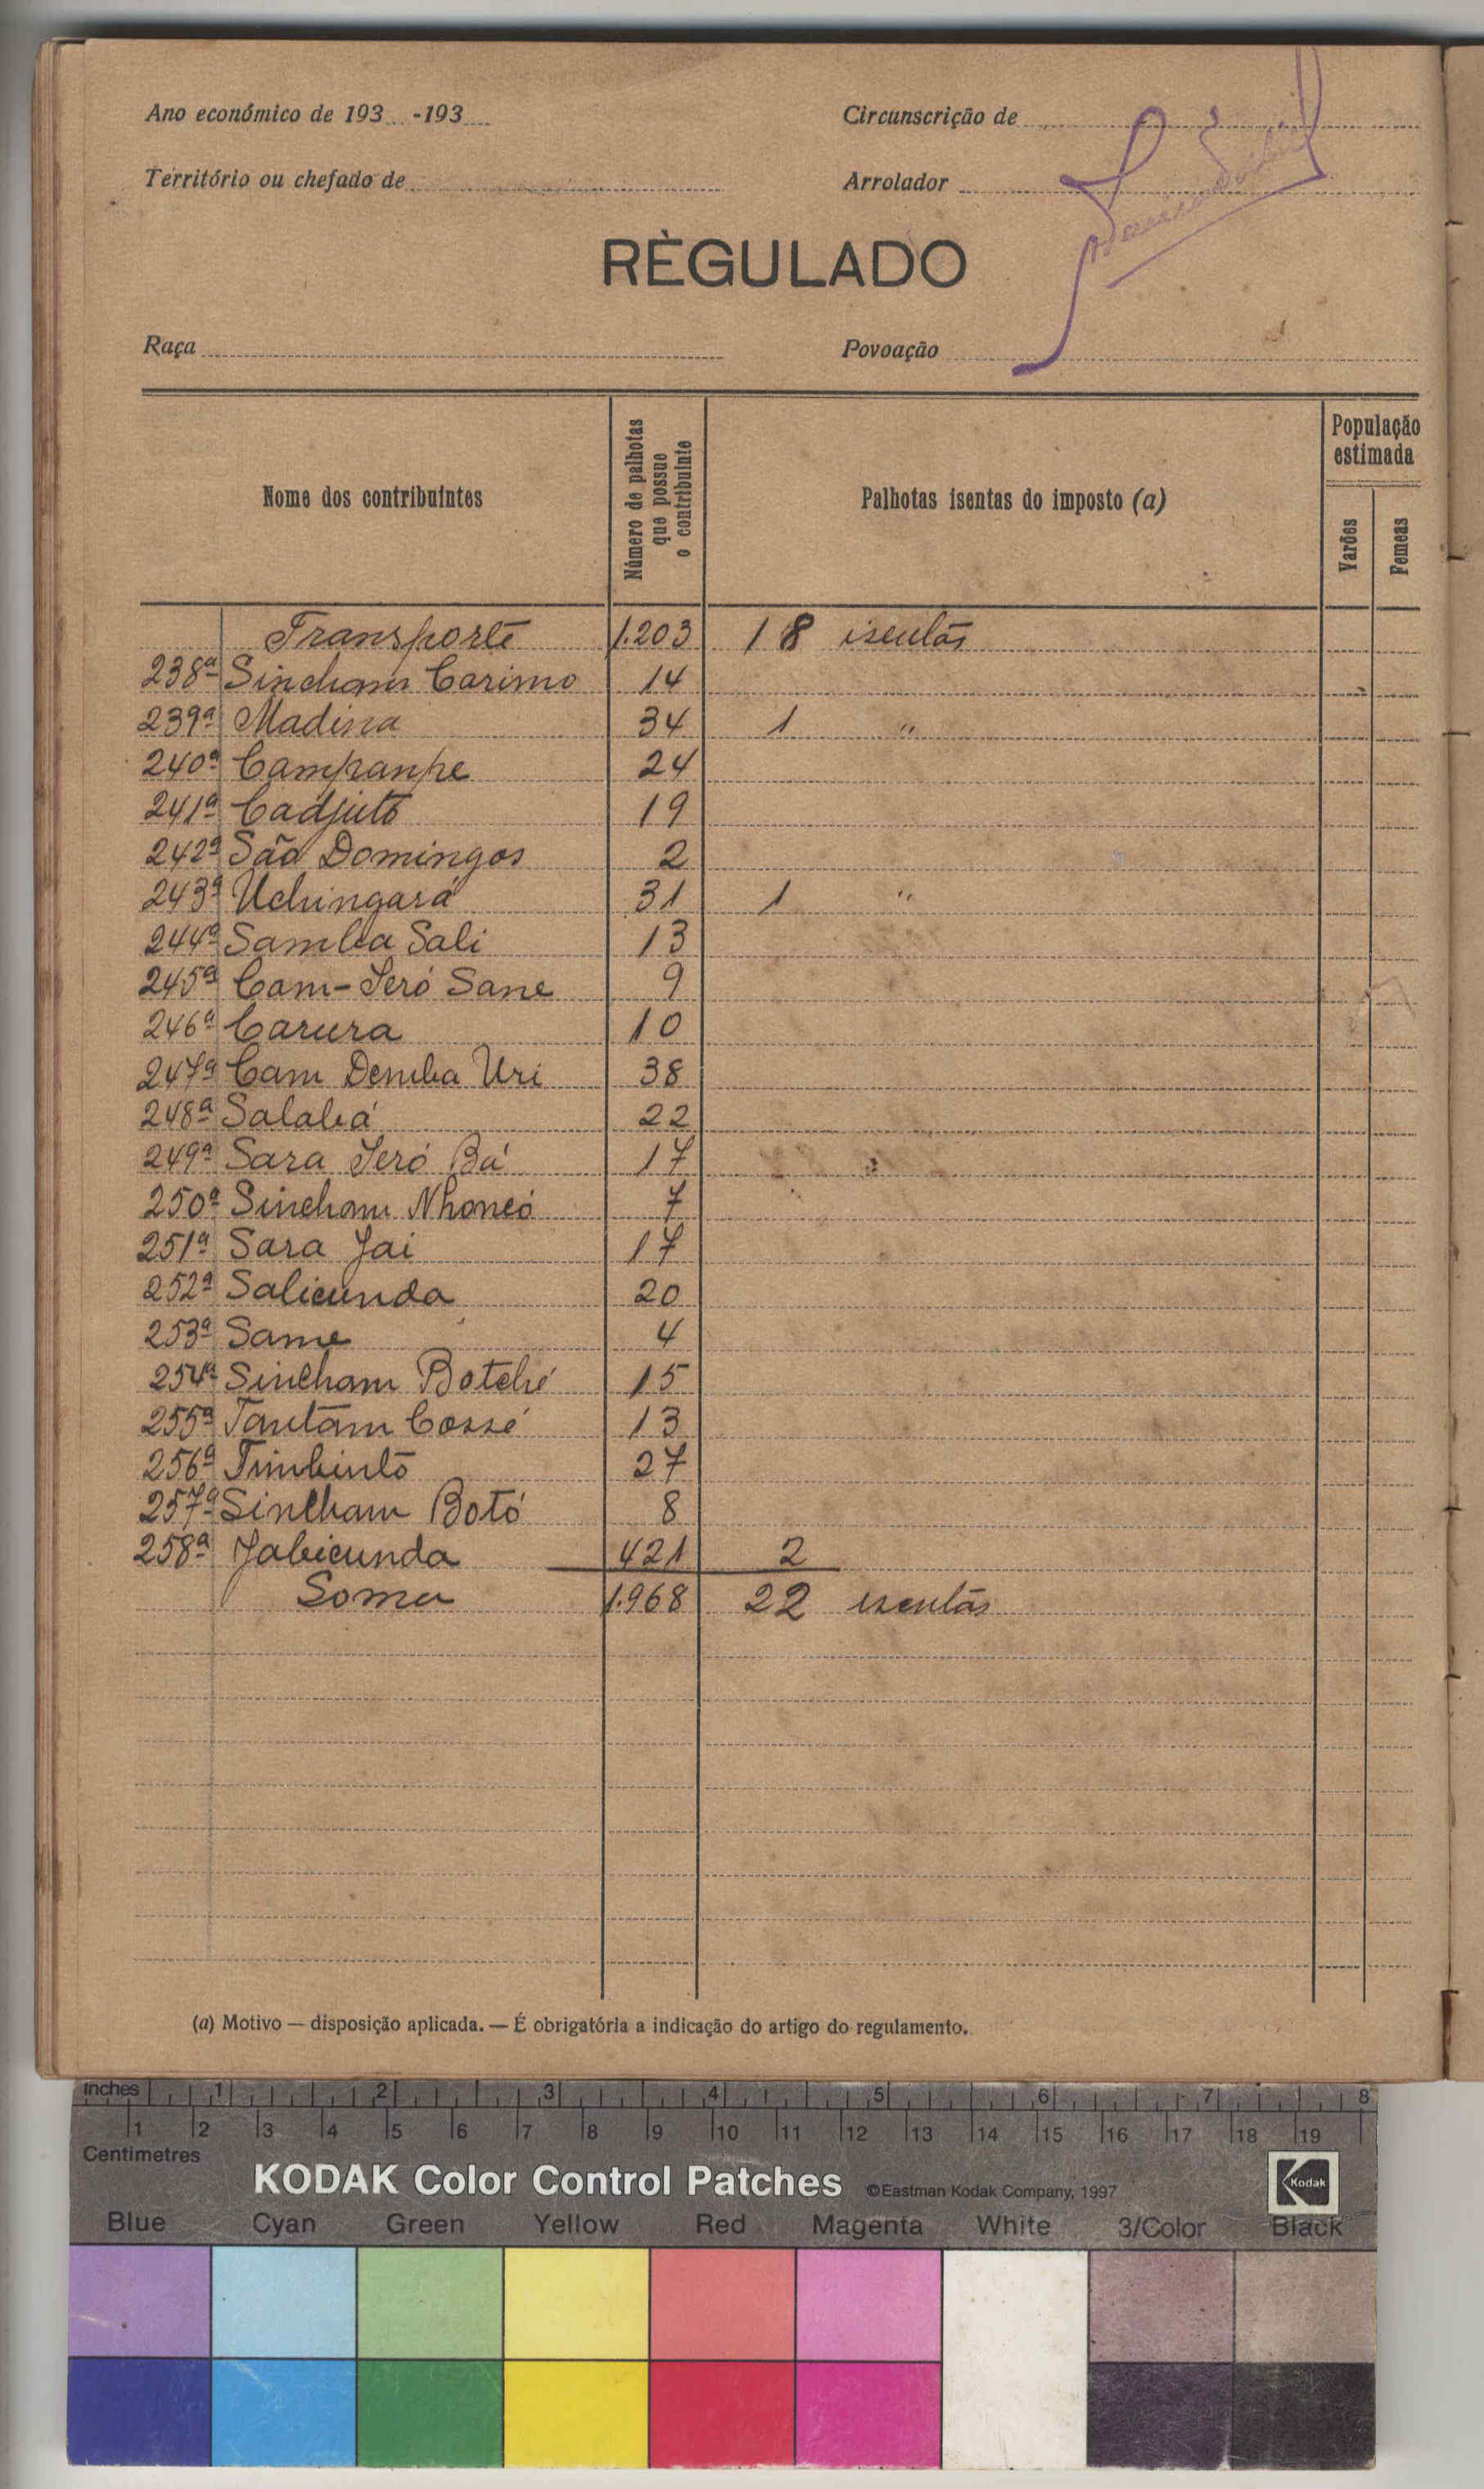 Ano económico de 193 -193
Circunscrição de
Território ou chefado de
Arrolador
RÈGULADO
Raça
Povoação
Nome dos contribuintes
Número de palhotas que possue o contribuinte
Palhotas isentas do imposto (a)
População estimada
Varões
Femeas
Transporte 1.203 18 isentas
238ª Sincham Carimo 14
239ª Madina 34 1 "
240ª Campanpe 24
241ª Cadjuto 19
242ª São Domingos 2
243ª Uchingará 31 1 "
244ª Samba Sali 13
245ª Cam-Seró Sane 9
246ª Carura 10
247ª Cam Demba Uri 38
248ª Salabá 22
249ª Sara Seró Bá 17
250ª Sincham Nhoncó 7
251ª Sara Jai 17
252ª Salicunda 20
253ª Same 4
254ª Sincham Botché 15
255ª Tantam Cossé 13
256ª Timbinto 27
257ª Sincham Botó 8
258ª Jabicunda 421 2
Soma 1.968 22 isentas
(a) Motivo — disposição aplicada. — É obrigatória a indicação do artigo do regulamento.
Inches 1 2 3 4 5 6 7 8
1 2 3 4 5 6 7 8 9 10 11 12 13 14 15 16 17 18 19
Centimetres
KODAK Color Control Patches ©Eastman Kodak Company, 1997 Kodak
Blue Cyan Green Yellow Red Magenta White 3/Color Black